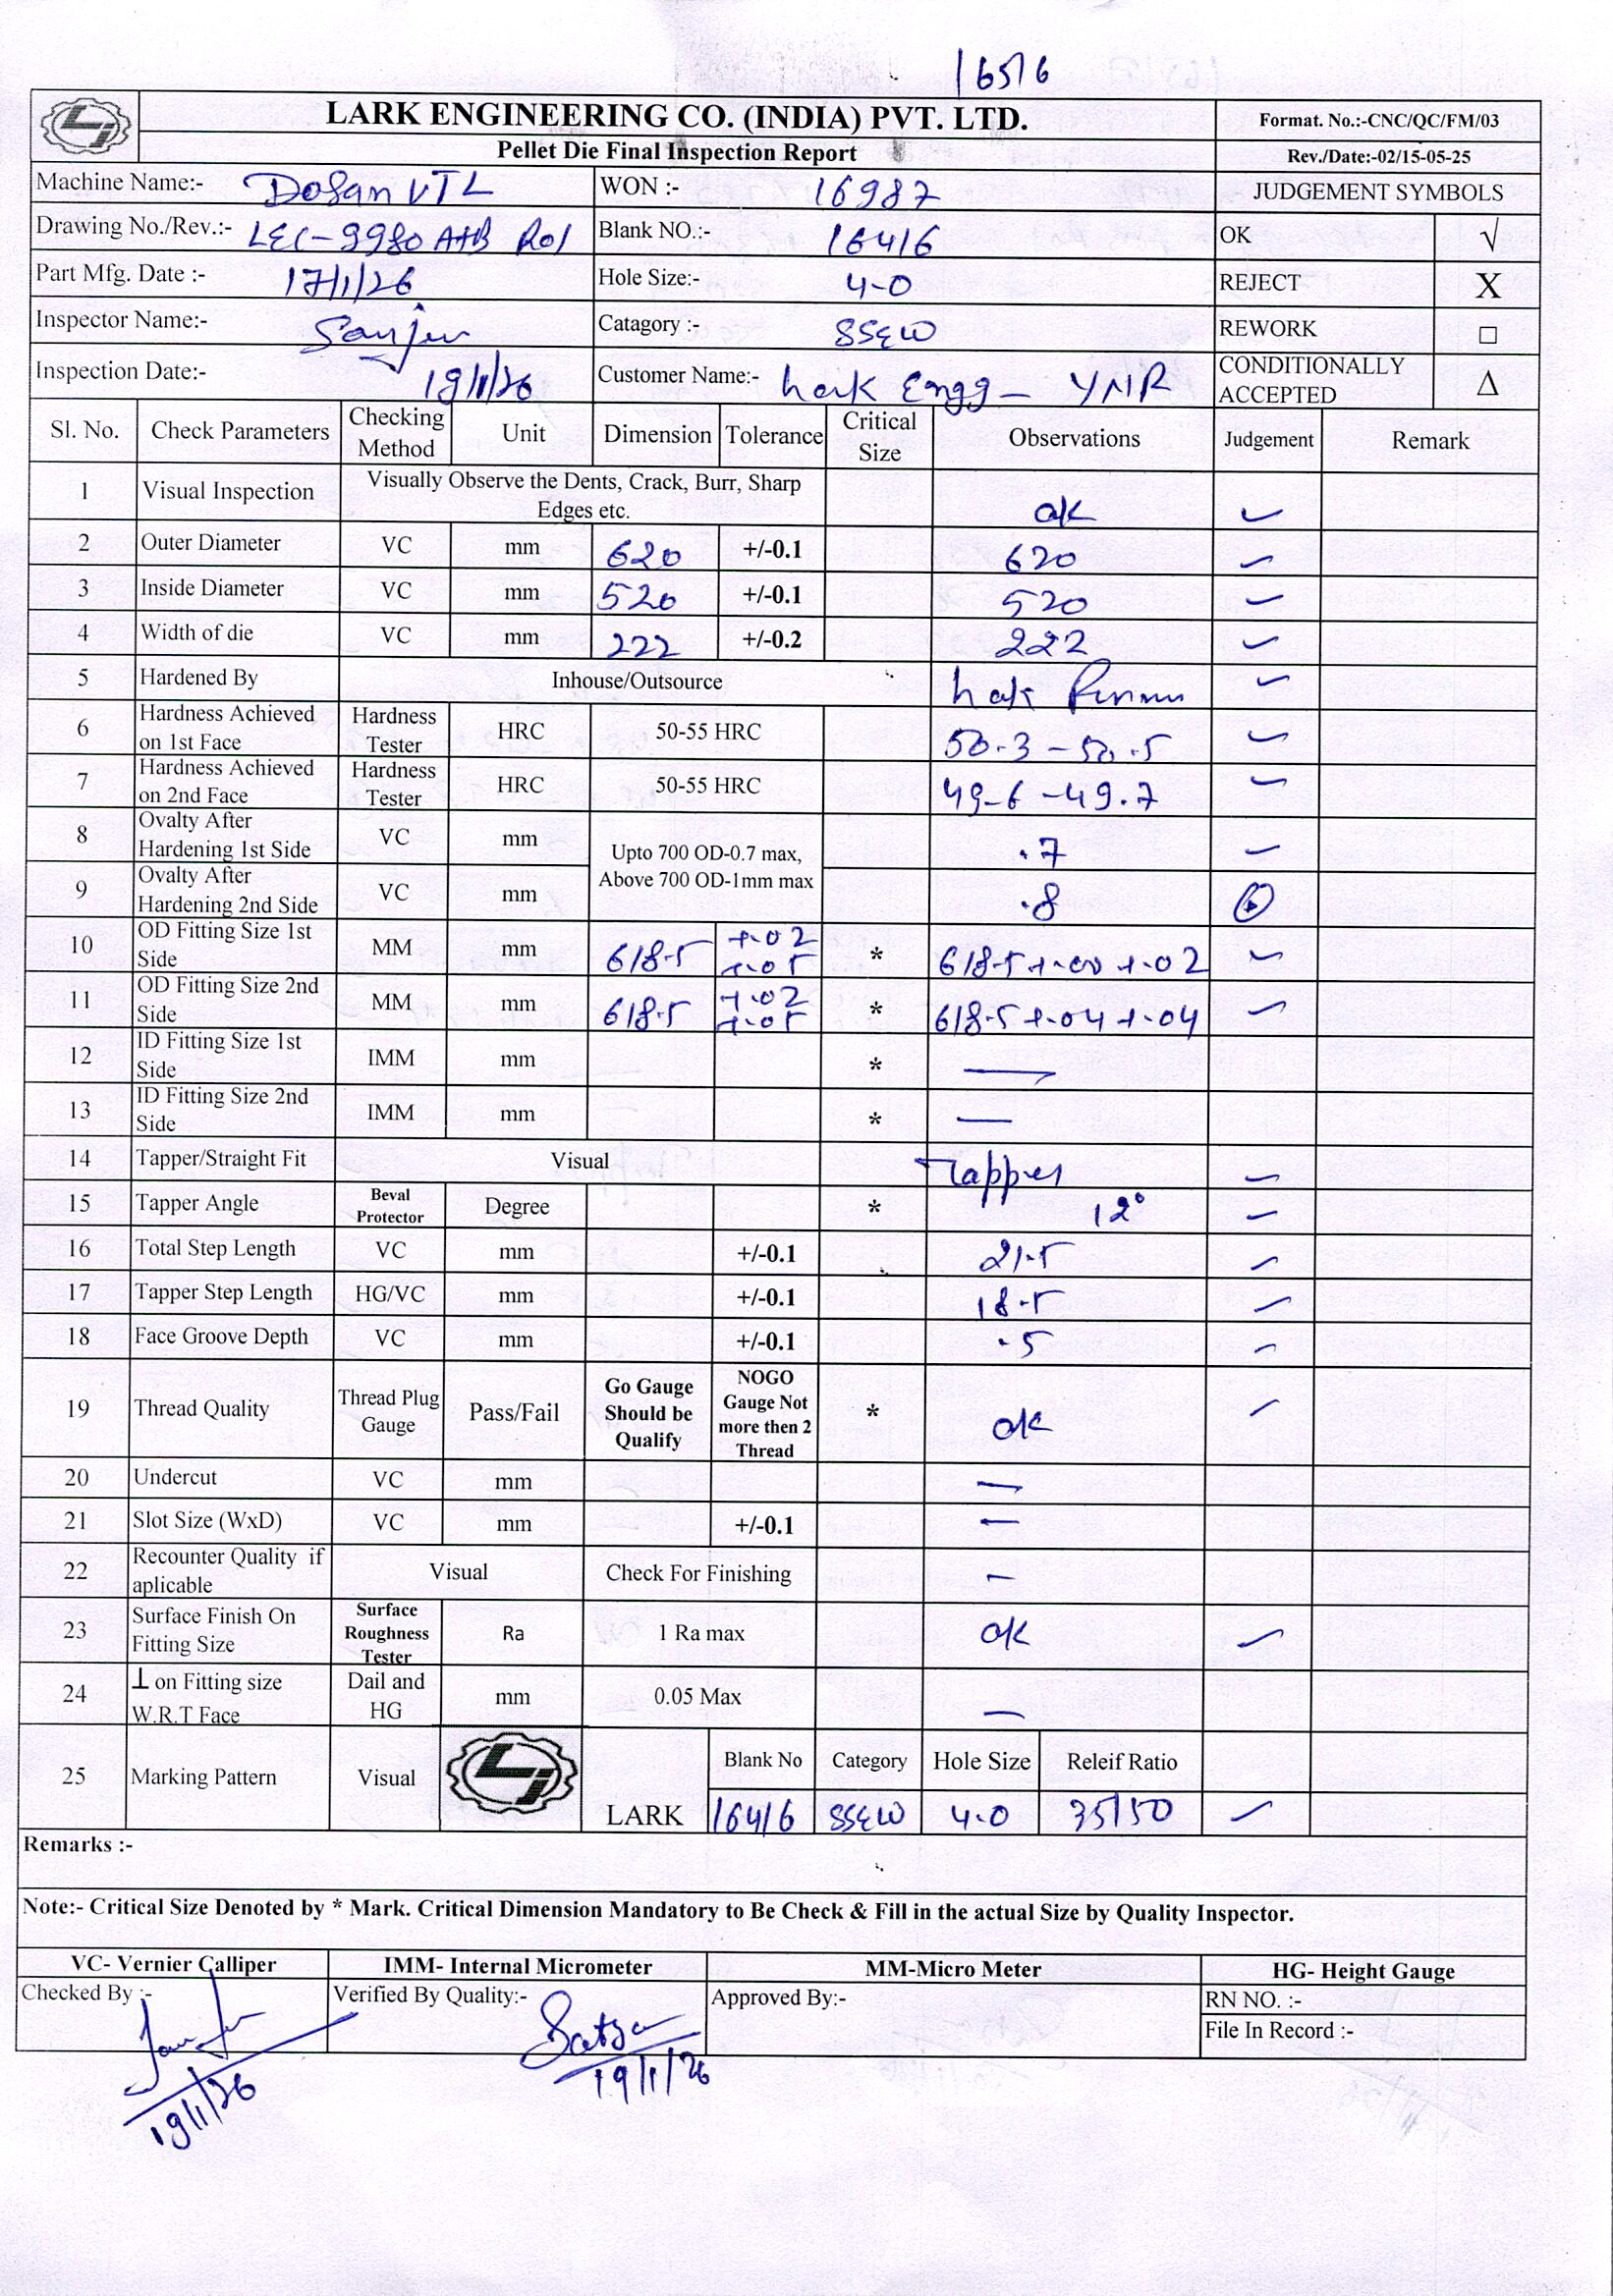 16516
LARK ENGINEERING CO. (INDIA) PVT. LTD.
Format. No.:-CNC/QC/FM/03
Pellet Die Final Inspection Report
Rev./Date:-02/15-05-25
Machine Name:- Dosan VTL WON :- 16987 JUDGEMENT SYMBOLS
Drawing No./Rev.:- LEC-9980 A+B R01 Blank NO.:- 16416 OK √
Part Mfg. Date :- 17/1/26 Hole Size:- 4.0 REJECT X
Inspector Name:- Sanjeev Catagory :- SSEW REWORK □
Inspection Date:- 19/1/26 Customer Name:- Lark Engg - YNR CONDITIONALLY ACCEPTED Δ
Sl. No. Check Parameters Checking Method Unit Dimension Tolerance Critical Size Observations Judgement Remark
1 Visual Inspection Visually Observe the Dents, Crack, Burr, Sharp Edges etc. ok ✓
2 Outer Diameter VC mm 620 +/-0.1 620 ✓
3 Inside Diameter VC mm 520 +/-0.1 520 ✓
4 Width of die VC mm 222 +/-0.2 222 ✓
5 Hardened By Inhouse/Outsource Lark ✓
6 Hardness Achieved on 1st Face Hardness Tester HRC 50-55 HRC 50.3 - 50.5 ✓
7 Hardness Achieved on 2nd Face Hardness Tester HRC 50-55 HRC 49.6 - 49.7 ✓
8 Ovalty After Hardening 1st Side VC mm Upto 700 OD-0.7 max, Above 700 OD-1mm max .7 ✓
9 Ovalty After Hardening 2nd Side VC mm .8
10 OD Fitting Size 1st Side MM mm 618.5 +.02 +.05 * 618.5 +.00 +.02 ✓
11 OD Fitting Size 2nd Side MM mm 618.5 +.02 +.05 * 618.5 +.04 +.04 ✓
12 ID Fitting Size 1st Side IMM mm * —
13 ID Fitting Size 2nd Side IMM mm * —
14 Tapper/Straight Fit Visual Tapper ✓
15 Tapper Angle Beval Protector Degree * 12° ✓
16 Total Step Length VC mm +/-0.1 21.5 ✓
17 Tapper Step Length HG/VC mm +/-0.1 18.5 ✓
18 Face Groove Depth VC mm +/-0.1 .5 ✓
19 Thread Quality Thread Plug Gauge Pass/Fail Go Gauge Should be Qualify NOGO Gauge Not more then 2 Thread * ok ✓
20 Undercut VC mm —
21 Slot Size (WxD) VC mm +/-0.1 —
22 Recounter Quality if aplicable Visual Check For Finishing —
23 Surface Finish On Fitting Size Surface Roughness Tester Ra 1 Ra max ok ✓
24 ⊥ on Fitting size W.R.T Face Dail and HG mm 0.05 Max —
25 Marking Pattern Visual LARK Blank No Category Hole Size Releif Ratio
16416 SSEW 4.0 35/50 ✓
Remarks :-
Note:- Critical Size Denoted by * Mark. Critical Dimension Mandatory to Be Check & Fill in the actual Size by Quality Inspector.
VC- Vernier Calliper IMM- Internal Micrometer MM-Micro Meter HG- Height Gauge
Checked By :- Verified By Quality:- Approved By:- RN NO. :-
File In Record :-
19/1/26
19/1/26